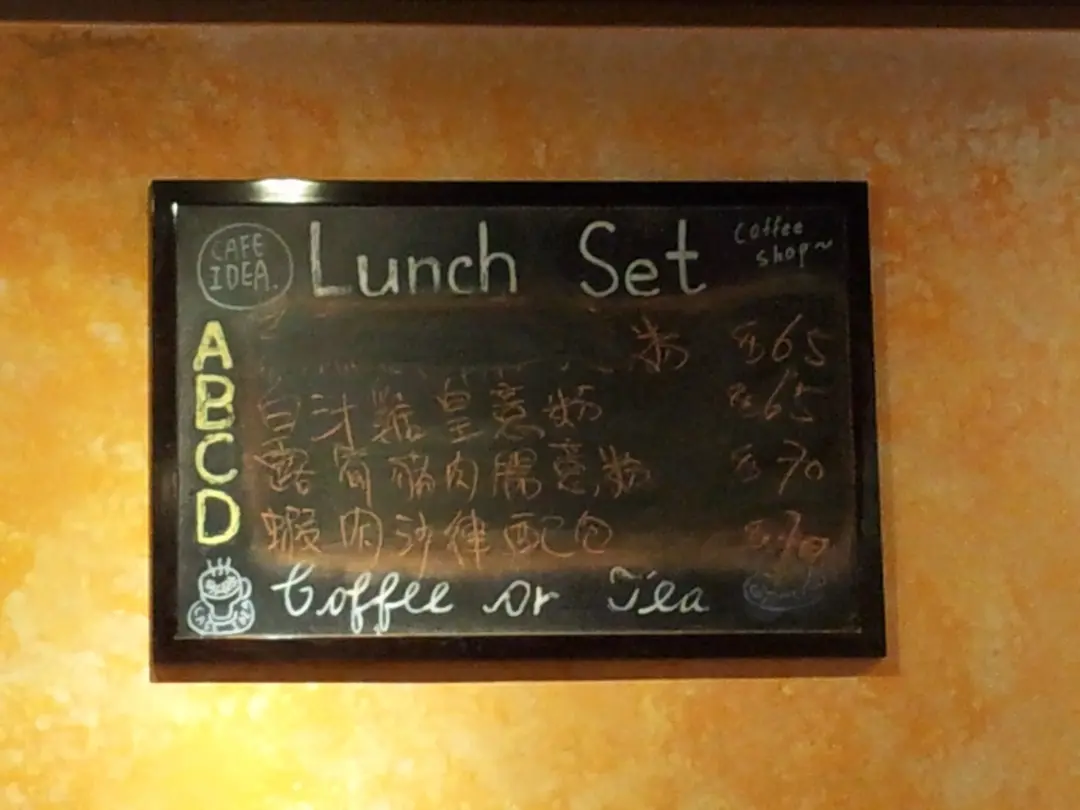 CAFE IDEA.
Lunch Set
Coffee shop~
A 粉 65
B 白汁 皇意粉 65
C 露筍 肉腸意粉 70
D 蝦肉沙律配包 70
Coffee or Tea